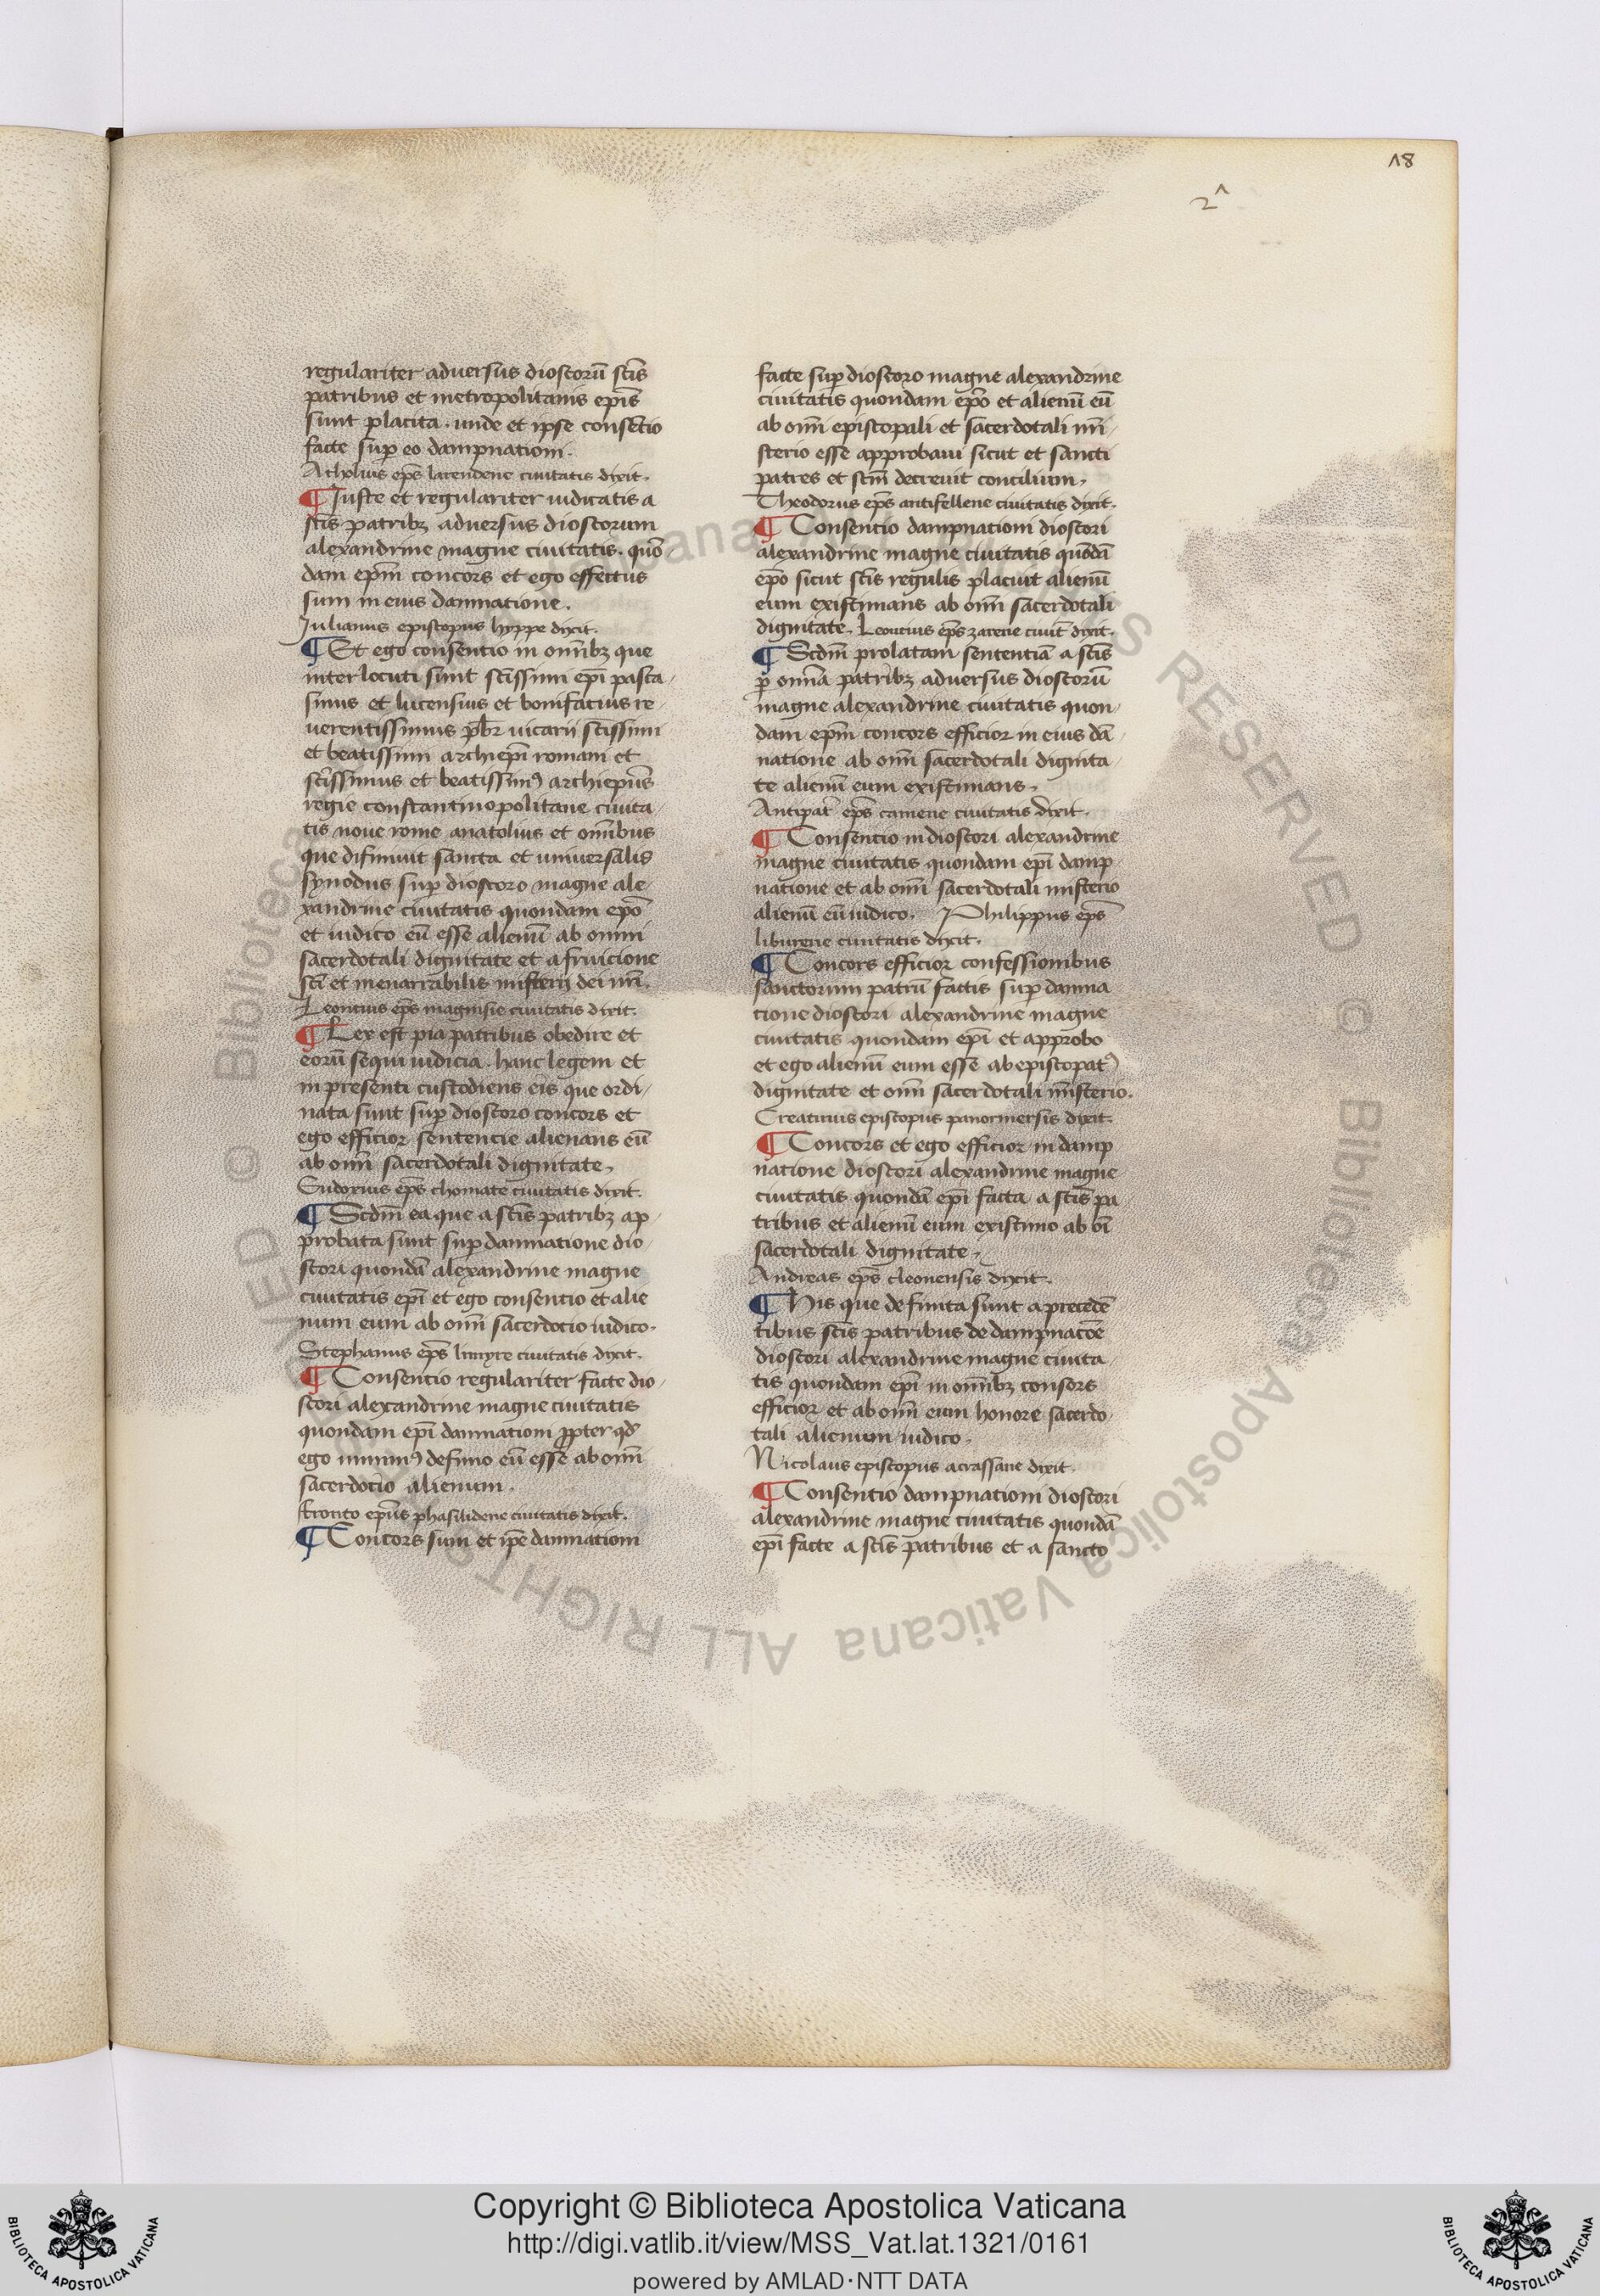 18
2^
regulariter aduersus dioscorū sc̄is
patribus et metropolitanis ep̄is
sunt placita . unde et ipse consētio
facte sup̱ eo dampnationi .
Atholius ep̄s latendene ciuitatis dixit .
¶ Iuste et regulariter iudicatis a
sc̄is patribꝫ aduersus dioscorum
alexandrine magne ciuitatis . quō
dam ep̄m concors et ego effectus
sum in eius damnatione .
Iulianus episcopus hyppe dixit .
¶ Et ego consentio in om̄ibꝫ que
interlocuti sunt sc̄issimi ep̄i pasca
sinus et lucensius et bonifatius re
uerentissimus pb̄r uicarii sc̄issimi
et beatissimi archiep̄i romani et
sc̄issimus et beatissimꝰ archiep̄us
regie constantinopolitane ciuita
tis noue rome anatolius et om̄ibus
que difiniuit sancta et uniuersalis
synodus sup̱ dioscoro magne ale
xandrine ciuitatis quondam ep̄o
et iudico eū esse alienū ab omni
sacerdotali dignitate et a fruicione
sc̄i et inenarrabilis misterij dei nr̄i .
Leoncius ep̄s magnisie ciuitatis dixit .
¶ Lex est pia patribus obedire et
eorū sequi iudicia . hanc legem et
in presenti custodiens eis que ordi
nata sunt sup̱ dioscoro concors et
ego efficior sentencie alienans eū
ab om̄i sacerdotali dignitate .
Eudoxius ep̄s chomate ciuitatis dixit .
¶ Scd̄m ea que a sc̄is patribꝫ ap
probata sunt sup̱ damnatione dio
scori quondā alexandrine magne
ciuitatis ep̄i et ego consentio et alie
num eum ab om̄i sacerdocio iudico .
Stephanus ep̄s limyre ciuitatis dixit .
¶ Consentio regulariter facte dio
scori alexandrine magne ciuitatis
quondam ep̄i damnationi ꝓpter qd̄
ego minimꝰ definio eū esse ab om̄i
sacerdotio alienum .
ffronto ep̄us phasilidene ciuitatis dixit .
¶ Concors sum et ip̄e damnationi
facte sup̱ dioscoro magne alexandrine
ciuitatis quondam ep̄o et alienū eū
ab om̄i episcopali et sacerdotali mi
sterio esse approbaui sicut et sancti
patres et sc̄m decreuit concilium .
Theodorus ep̄s antifellene ciuitatis dixit .
¶ Consentio dampnationi dioscori
alexandrine magne ciuitatis quōdā
ep̄o sicut sc̄is regulis placuit alienū
eum existimans ab om̄i sacerdotali
dignitate . Leoncius ep̄s zarene ciuit̄ dixit .
¶ Scd̄m prolatam sententiā a sc̄is
p̱ omnia patribꝫ aduersus dioscorū
magne alexandrine ciuitatis quon
dam ep̄m concors efficior in eius dā
natione ab om̄i sacerdotali dignita
te alienū eum existimans .
Antipat̄ ep̄s camene ciuitatis dixit .
¶ Consentio in dioscori alexandrine
magne ciuitatis quondam ep̄i damp
natione et ab om̄i sacerdotali misterio
alienū eū iudico . Philippus ep̄s
liburene ciuitatis dixit .
¶ Concors efficior confessionibus
sanctorum patrū factis sup̱ damna
tione dioscori alexandrine magne
ciuitatis quondam ep̄i et approbo
et ego alienū eum esse ab episcopatꝰ
dignitate et om̄i sacerdotali misterio .
Creaticius episcopus panormersis dixit .
¶ Concors et ego efficior in damp
natione dioscori alexandrine magne
ciuitatis quondā ep̄i facta a sc̄is pa
tribus et alienū eum existimo ab oī
sacerdotali dignitate .
Andreas ep̄s cleonensis dixit .
¶ His que definita sunt a precedē
tibus sc̄is patribus de dampnatōe
dioscori alexandrine magne ciuita
tis quondam ep̄i in om̄ibꝫ consors
efficior et ab om̄i eum honore sacerdo
tali alienum iudico .
Nicolaus episcopus acrassane dixit .
¶ Consentio dampnationi dioscori
alexandrine magne ciuitatis quondā
ep̄i facte a sc̄is patribus et a sancto
© Biblioteca Apostolica Vaticana ALL RIGHTS RESERVED
Copyright © Biblioteca Apostolica Vaticana
http://digi.vatlib.it/view/MSS_Vat.lat.1321/0161
powered by AMLAD·NTT DATA
BIBLIOTECA APOSTOLICA VATICANA
BIBLIOTECA APOSTOLICA VATICANA